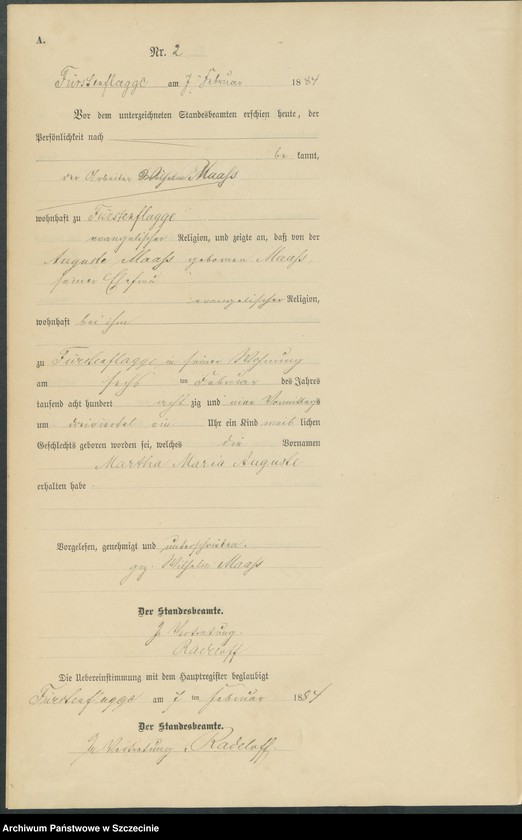 A.
Nr. 2
Fürstenflagge am 7. Februar 1884
Vor dem unterzeichneten Standesbeamten erschien heute, der
Persönlichkeit nach
be kannt,
der Arbeiter Wilhelm Maaß
wohnhaft zu Fürstenflagge
evangelischer Religion, und zeigte an, daß von der
Auguste Maaß geborenen Maaß,
seiner Ehefrau
evangelischer Religion,
wohnhaft bei ihm
zu Fürstenflagge in seiner Wohnung
am ten Februar des Jahres
tausend acht hundert acht zig und Vormittags
um dreiviertel Uhr ein Kind weib lichen
Geschlechts geboren worden sei, welches die Vornamen
Martha Maria Auguste
erhalten habe.
Vorgelesen, genehmigt und unterschrieben.
gez. Wilhelm Maaß
Der Standesbeamte.
In Vertretung.
Radeloff
Die Uebereinstimmung mit dem Hauptregister beglaubigt
Fürstenflagge am 7 ten Februar 1884
Der Standesbeamte.
In Vertretung. Radeloff
Archiwum Państwowe w Szczecinie